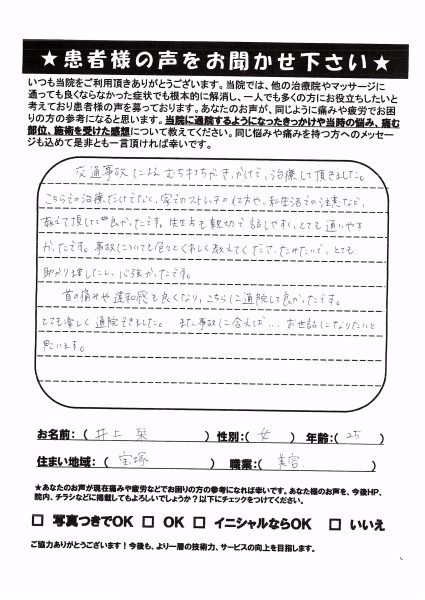 ★患者様の声をお聞かせ下さい★
いつも当院をご利用頂きありがとうございます。当院では、他の治療院やマッサージに
通っても良くならなかった症状でも根本的に解消し、一人でも多くの方にお役立ちしたいと
考えており患者様の声を募っております。あなたのお声が、同じように痛みや疲労でお困
りの方の参考になると思います。当院に通院するようになったきっかけや当時の悩み、痛む
部位、施術を受けた感想について教えてください。同じ悩みや痛みを持つ方へのメッセージ
も込めて是非とも一言頂ければ幸いです。
交通事故による むちうちがきっかけで、治療して頂きました。
こちらでの治療だけでなく、家でのストレッチの仕方や、私生活での注意など、
教えて頂けて良かったです。先生方も親切で話しやすく、とても通いやす
かったです。事故についても色々とくわしく教えてくださったみたいで、とても
助かりましたし、心強かったです。
首の痛みや違和感も良くなり、こちらに通院して良かったです。
とても楽しく通院できました。また事故に合えば…お世話になりたいと
思います。
お名前：（井上 栞）性別：（女）年齢：（25）
住まい地域：（宝塚）職業：（美容）
★あなたのお声が現在痛みや疲労などでお困りの方の参考になれば幸いです。あなた様のお声を、今後HP、
院内、チラシなどに掲載してもよろしいでしょうか？以下にチェックをつけてください。
□ 写真つきでOK □ OK □ イニシャルならOK □ いいえ
ご協力ありがとうございます！今後も、より一層の技術力、サービスの向上を目指します。